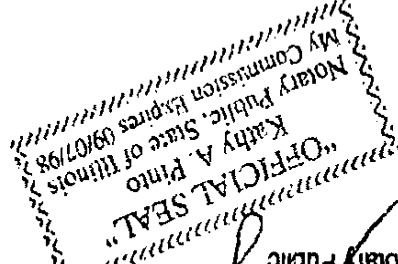 "OFFICIAL SEAL"
Kathy A. Pinto
Notary Public, State of Illinois
My Commission Expires 09/07/98
Notary Public